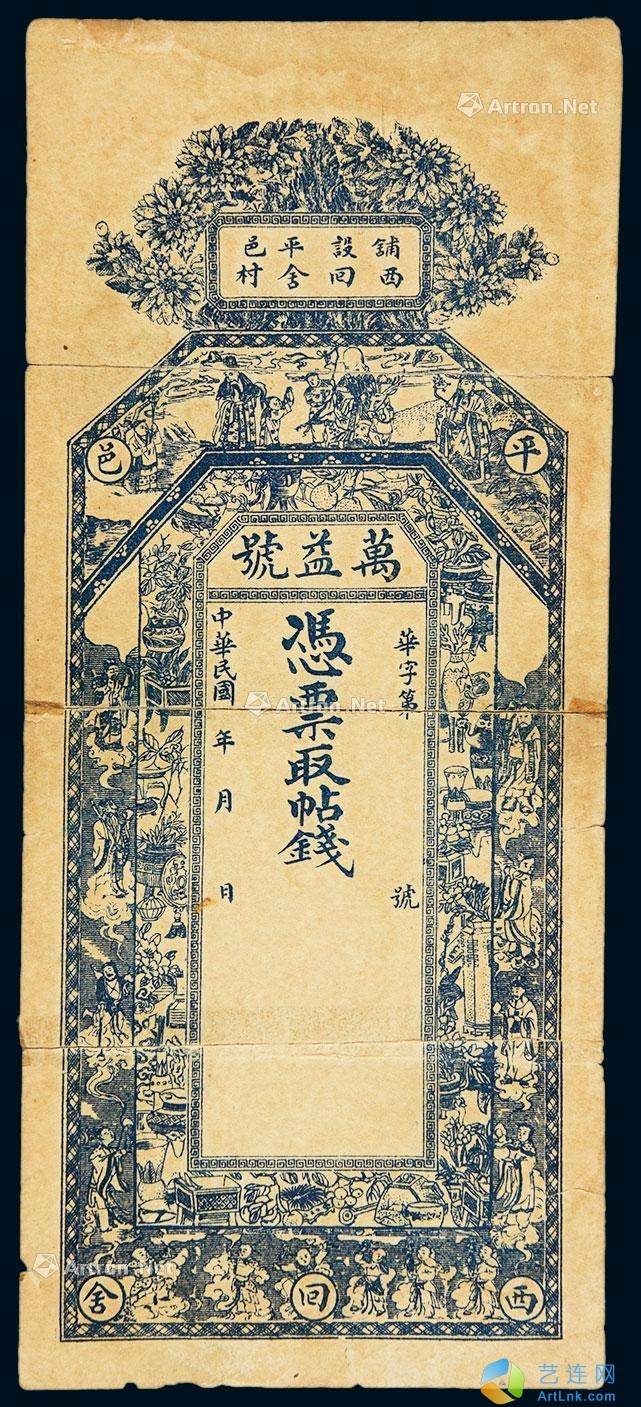 Artron.Net
舖設平邑
西回舍村
平邑
萬益號
華字第 號
憑票取帖錢
中華民國 年 月 日
Artron.Net
西回舍
Artron.Net
艺连网
ArtLnk.com